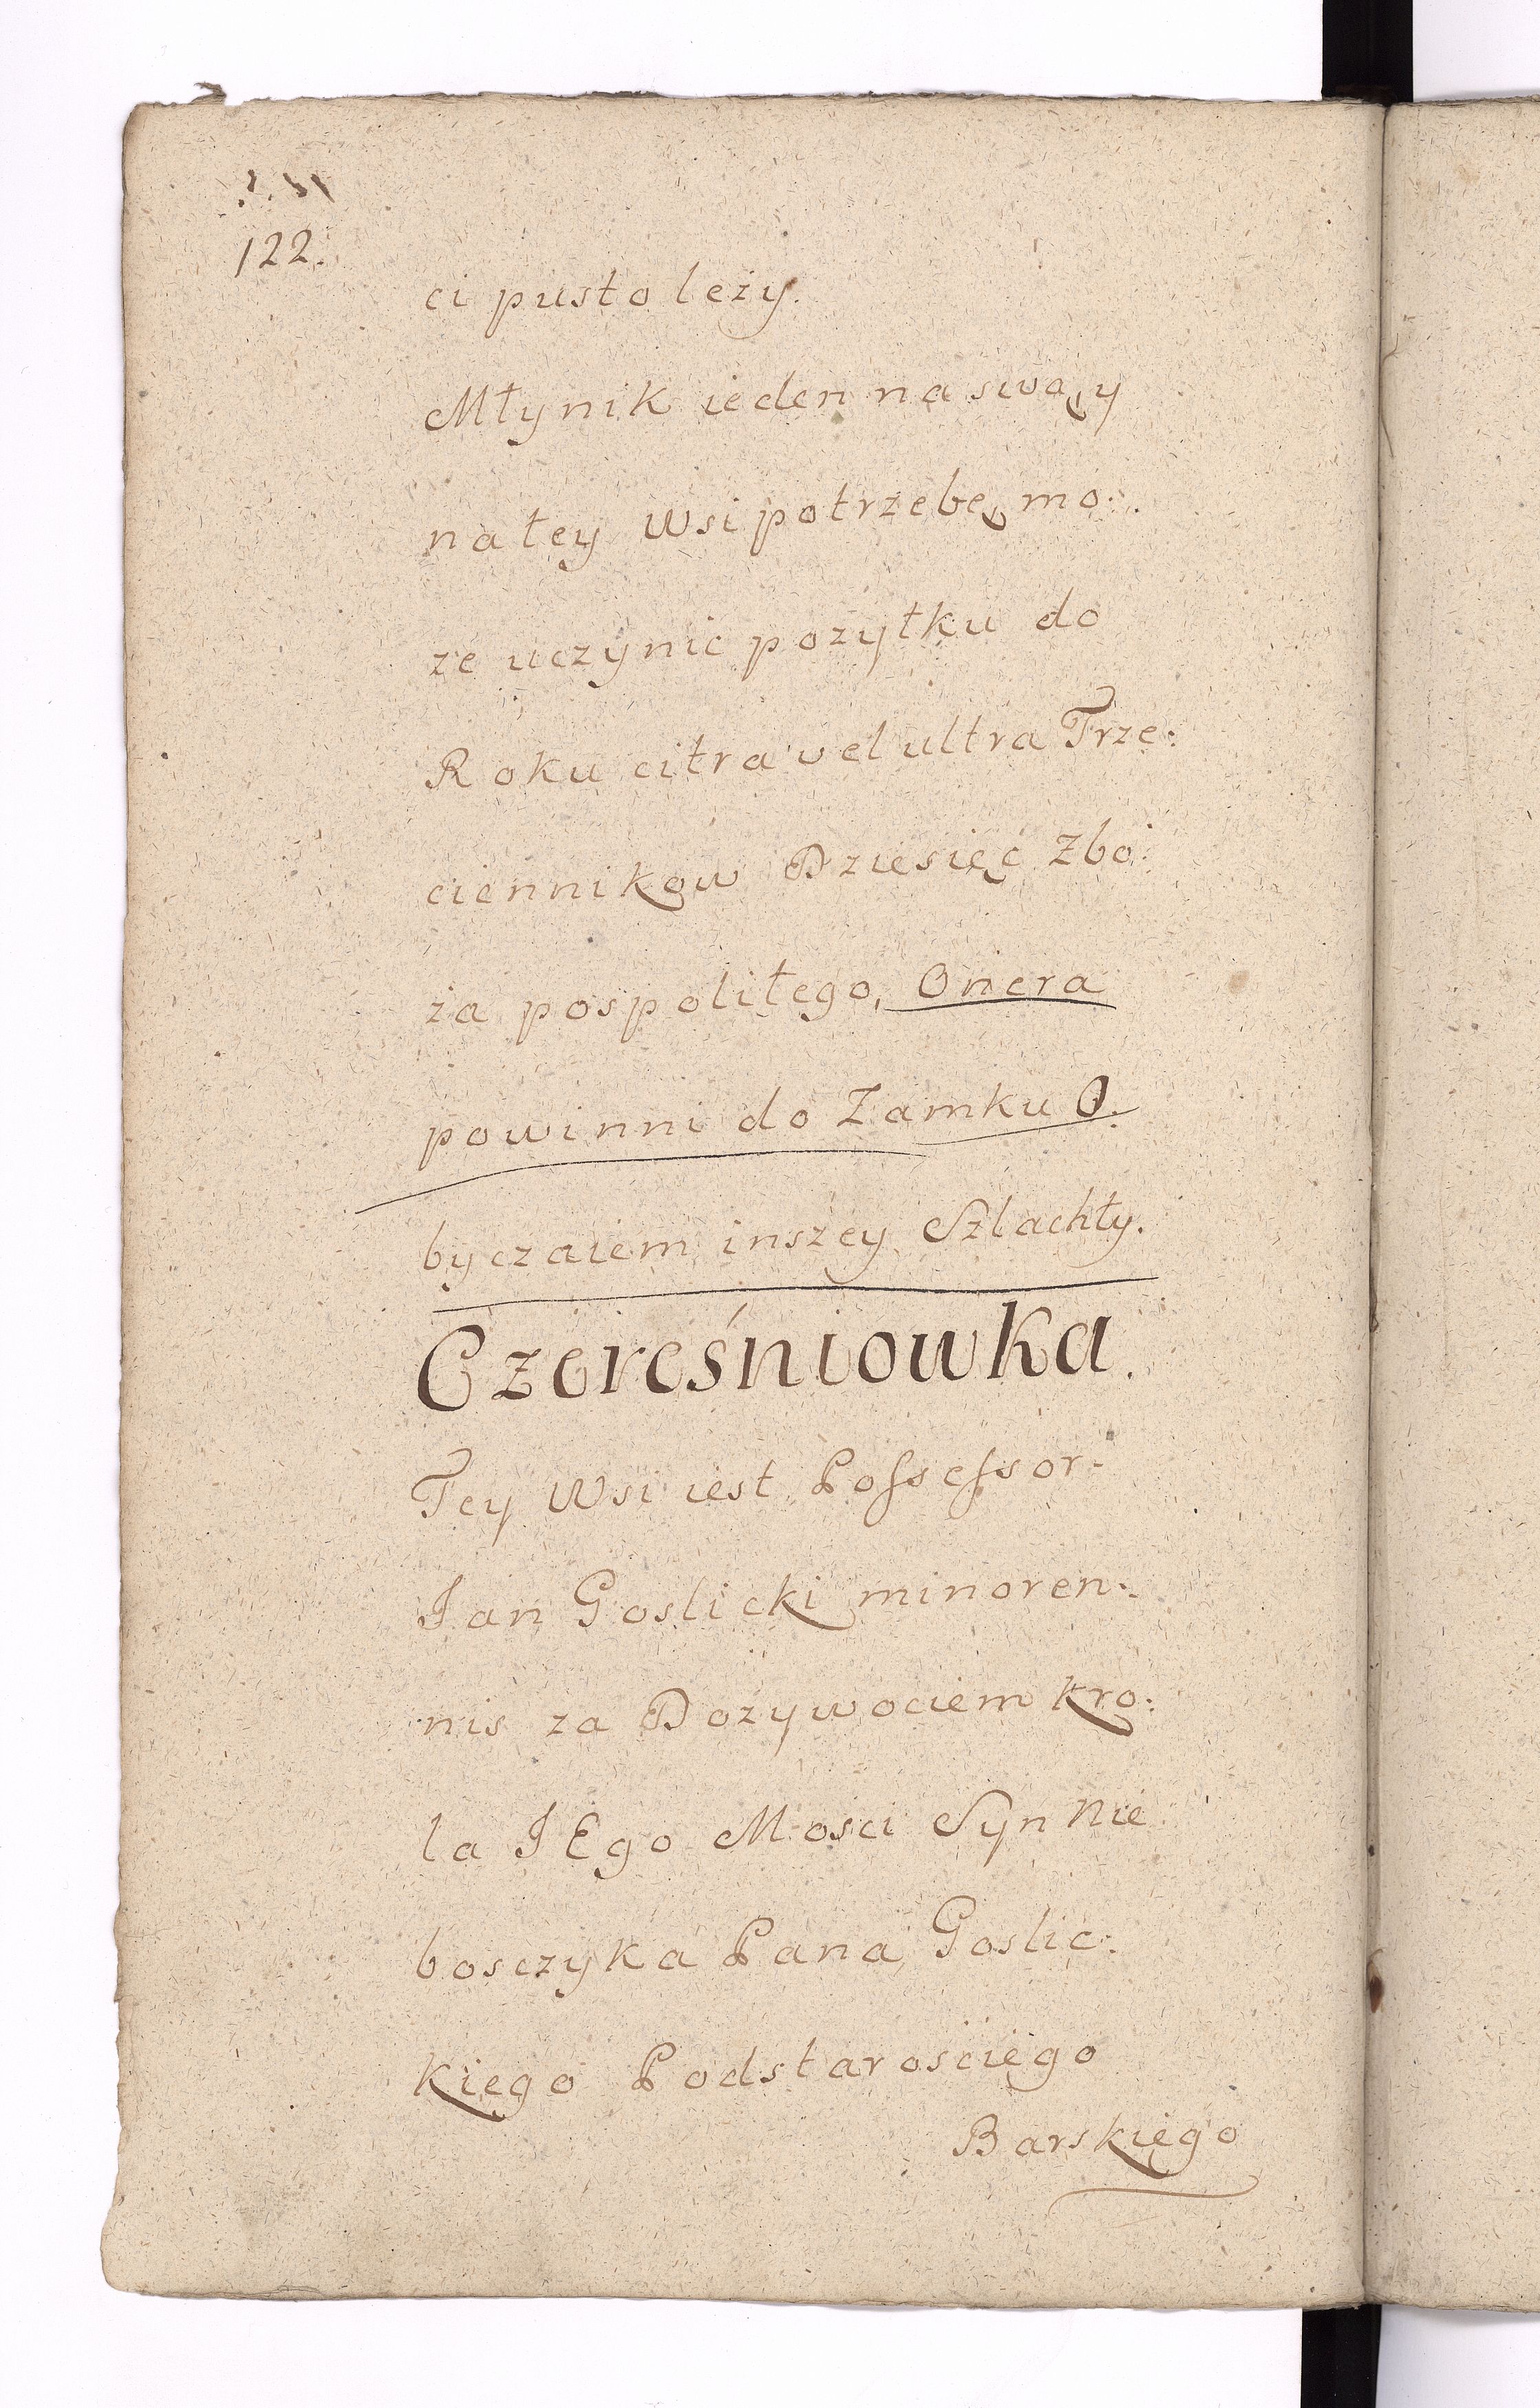 122.
ci pusto leży.
Młynik ieden na swąy
na tey wsi potrzebę mo:
że uczynic pożytku do
Roku citra vel ultra Trze:
ciennikow Dziesięć Zbo:
ża pospolitego, Onera
powinni do Zamku O.
byczaiem inszey Szlachty.
Czereśniowka.
Tey Wsi iest Possessor:
Jan Goslicki minoren:
nis za Dożywociem Kro:
la JEgo Mosci Syn Nie
bosczyka Pana Goslic:
kiego Podstarosciego
Barskiego